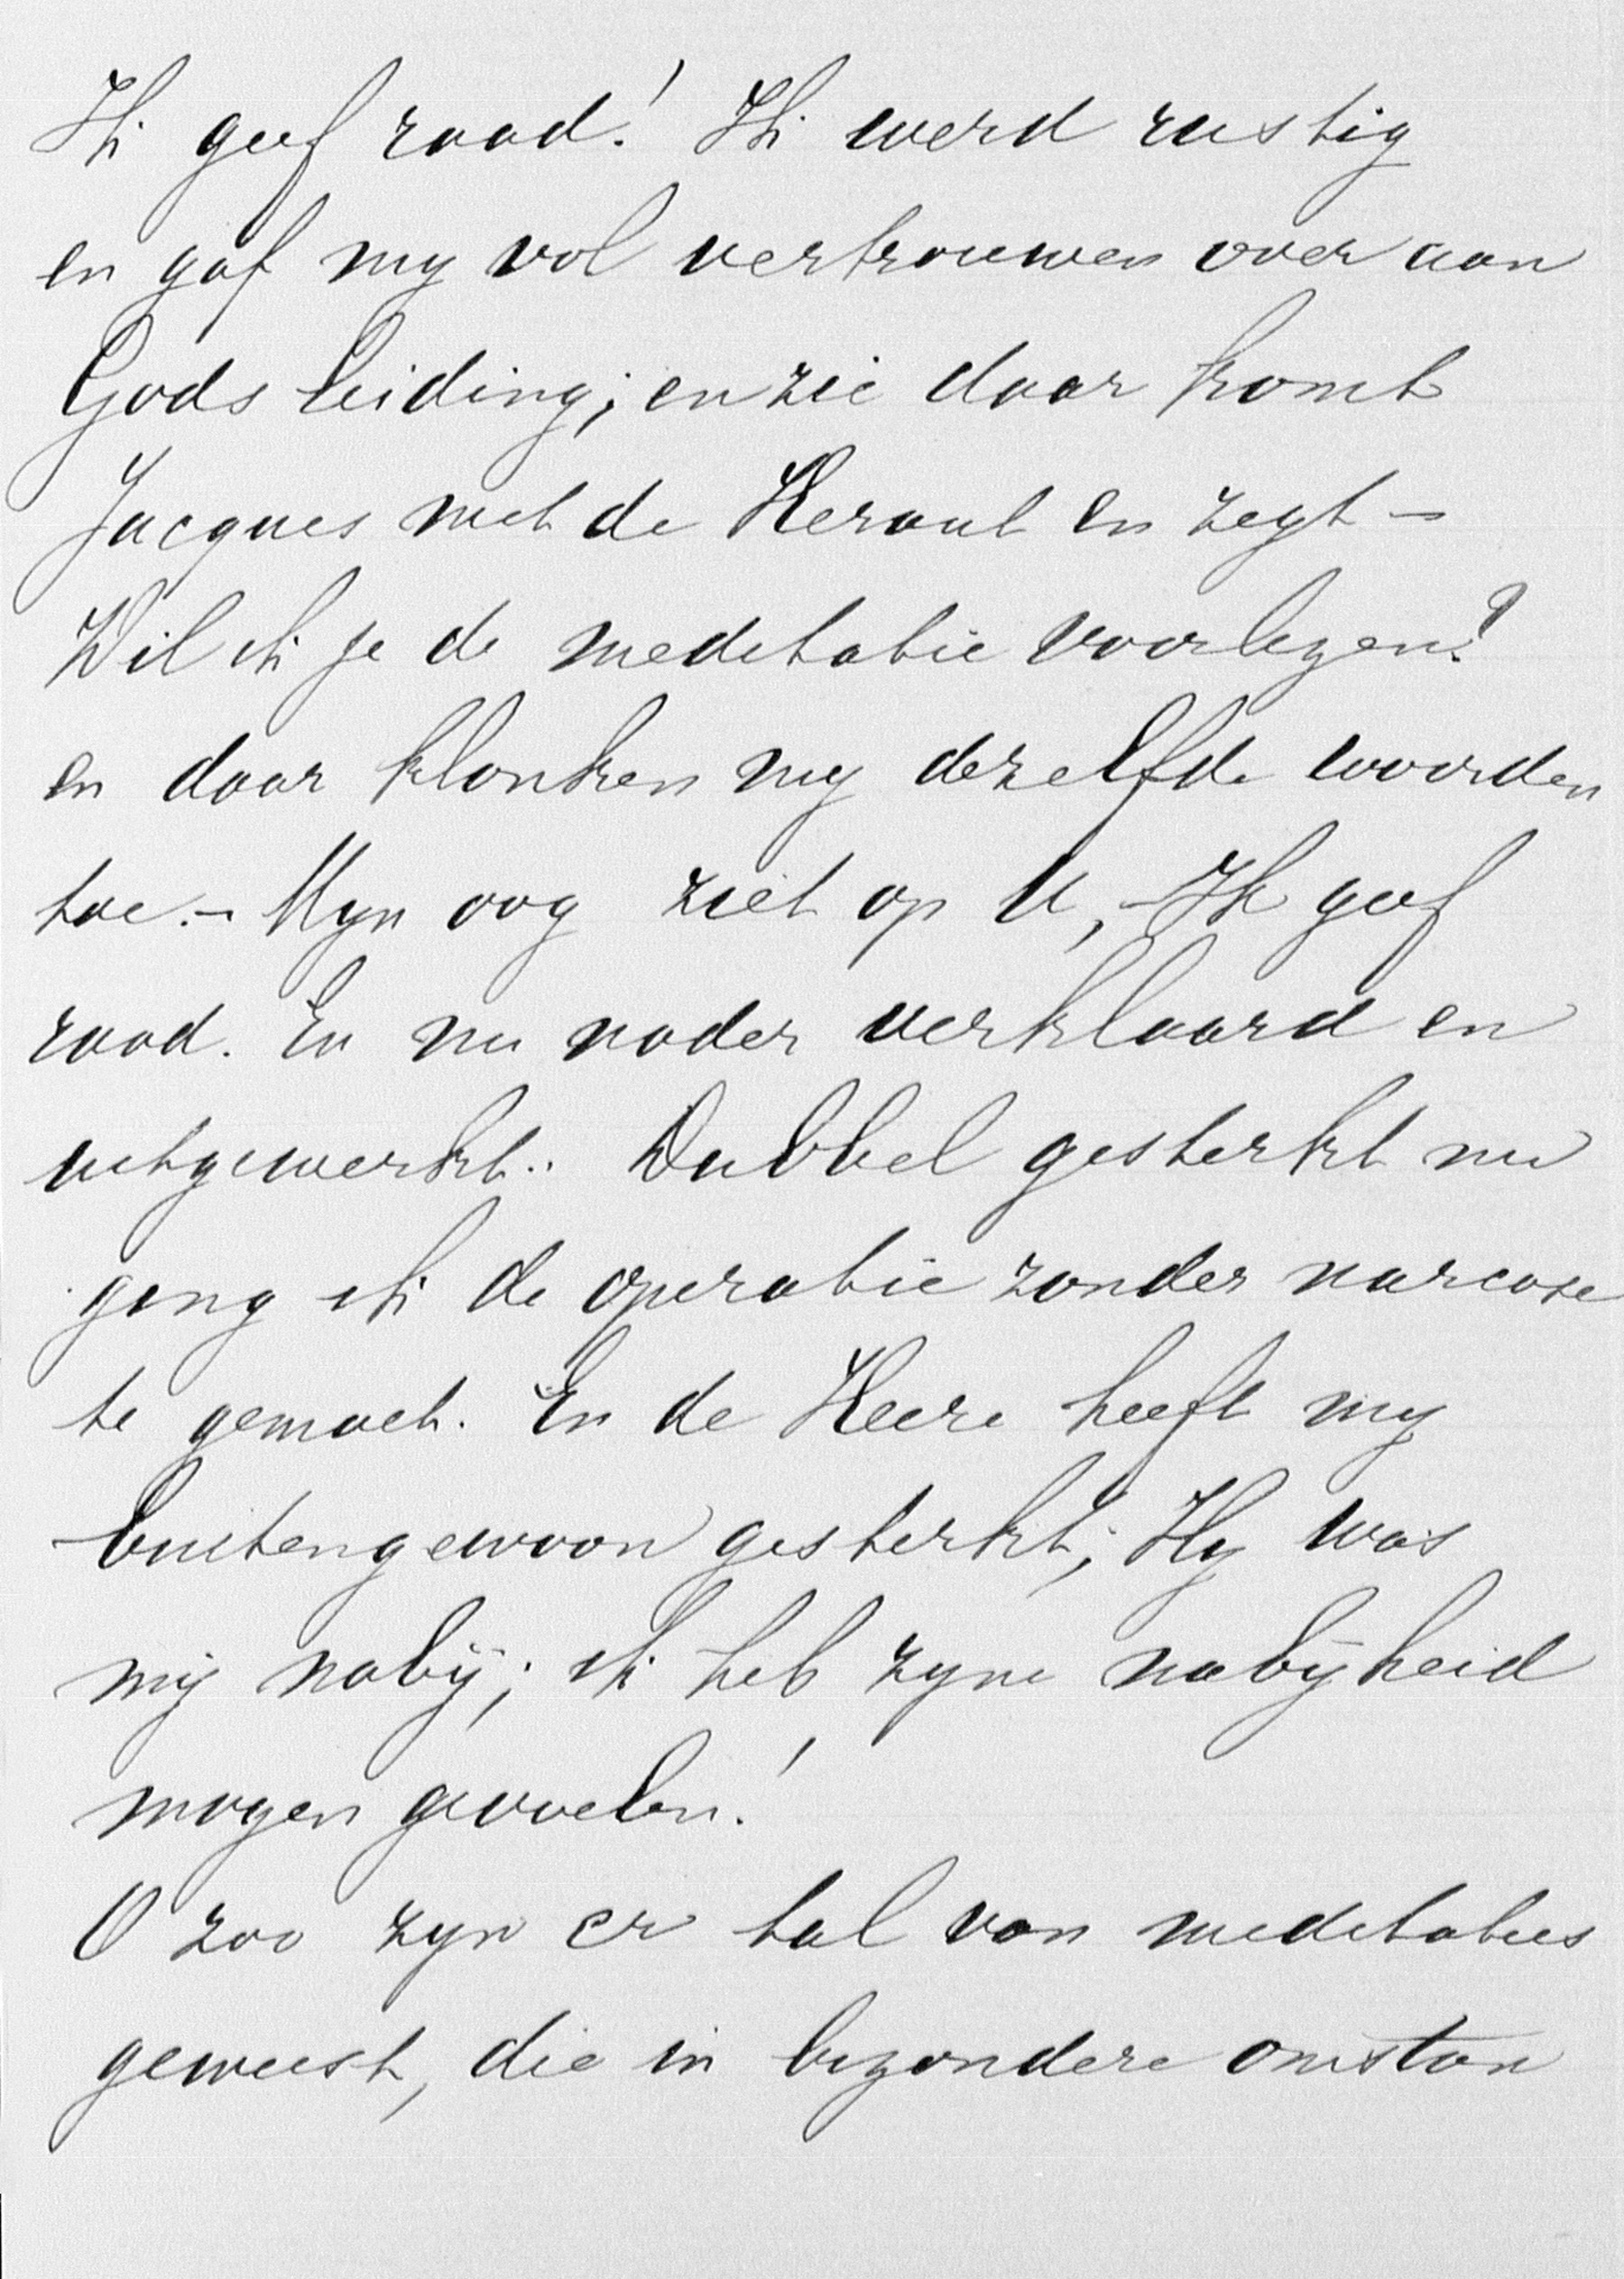 Ik geef raad! Ik werd rustig
en gaf my vol vertrouwen over aan
Gods leiding; en zie daar komt
Jacques met de Heraut en zegt –
Wil ik je de meditatie voorlezen?
en daar klonken my dezelfde woorden
toe. – Myn oog ziet op U, – Ik geef
raad. En nu nader verklaard en
uitgewerkt. Dubbel gesterkt nu
ging ik de operatie zonder narcose
te gemoet. En de Heere heeft my
buitengewoon gesterkt; Hy was
mij nabij; ik heb zyne nabijheid
mogen gevoelen!
O zoo zyn er tal van meditaties
geweest, die in byzondere omstan